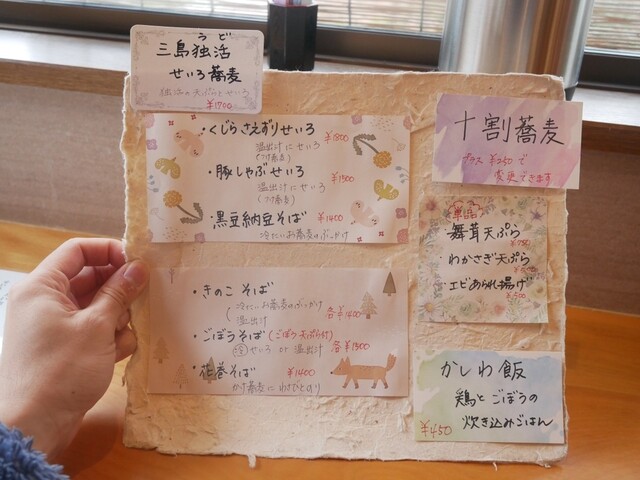 うど
三島独活
せいろ蕎麦
独活の天ぷらとせいろ
¥1700
・くじらさえずりせいろ ¥1800
温出汁にせいろ
(つけ蕎麦)
・豚しゃぶせいろ ¥1500
温出汁にせいろ
(つけ蕎麦)
・黒豆納豆そば ¥1400
冷たいお蕎麦のぶっかけ
・きのこ そば
冷たいお蕎麦のぶっかけ
温出汁 各¥1400
・ごぼうそば(ごぼう天ぷら付)
冷 せいろ or 温出汁 各¥1300
・花巻そば ¥1400
かけ蕎麦にわさびとのり
十割蕎麦
プラス ¥250で
変更できます
単品
・舞茸天ぷら
・わかさぎ天ぷら
・エビあられ揚げ
¥500
かしわ飯
鶏とごぼうの
炊き込みごはん
¥450